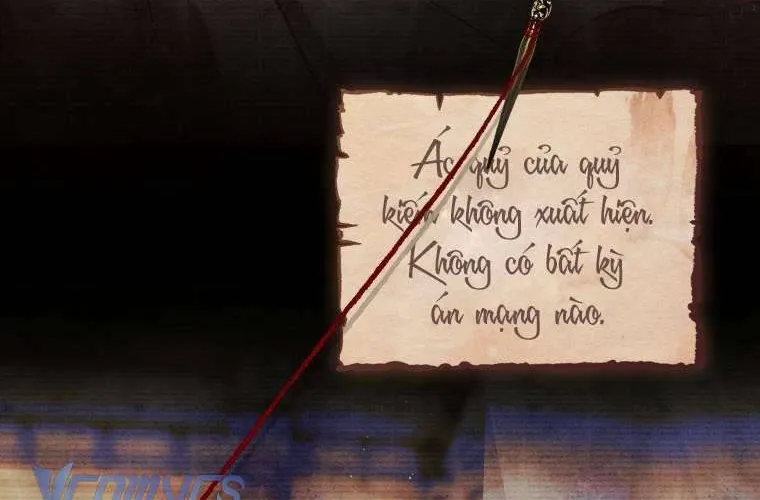 Ác quỷ của quỷ
kiếm không xuất hiện.
Không có bất kỳ
án mạng nào.
vcomycs